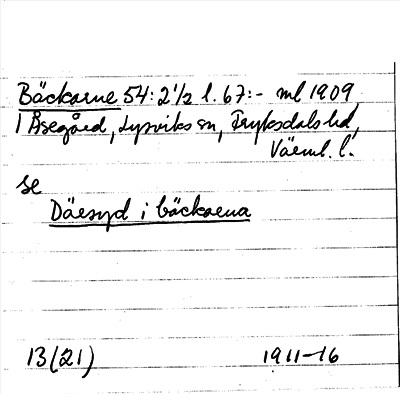 Bäckarne 54: 2 1/2 l. 67:- ml 1909
i Åsegård, Lysviks sn, Fryksdals hd,
Värml. l.
se
Däesyd i bäckarna
13(21) 1911-16